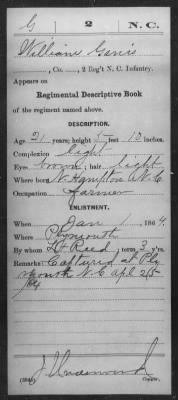 G 2 N.C.
William Garris
, Co. , 2 Reg't N. C. Infantry.
Appears on
Regimental Descriptive Book
of the regiment named above.
DESCRIPTION.
Age 21 years; height 5 feet 10 inches.
Complexion Light
Eyes brown; hair light
Where born N. Hampton N.C.
Occupation farmer
ENLISTMENT.
When Jan 1, 1864.
Where Plymouth
By whom Lt Reed; term 3 y'rs.
Remarks: Captured at Ply
mouth N.C. Apl 25
/64
J Underwood
Copyist.